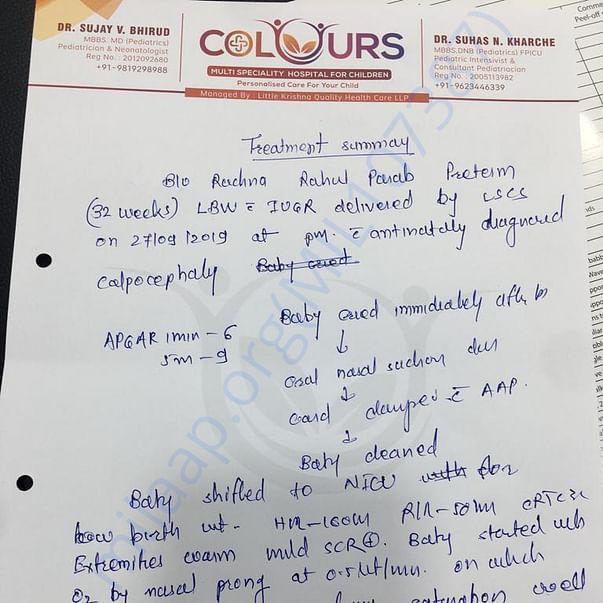 DR. SUJAY V. BHIRUD
MBBS. MD (Pediatrics)
Pediatrician & Neonatologist
Reg No.: 2012092680
+91-9819298988
COLOURS
MULTI SPECIALITY HOSPITAL FOR CHILDREN
Personalised Care For Your Child
Managed By : Little Krishna Quality Health Care LLP
DR. SUHAS N. KHARCHE
MBBS,DNB (Pediatrics) FPICU
Pediatric Intensivist &
Consultant Pediatrician
Reg No. : 2005113982
+91-9623446339
Comme
Peel-off
Treatment summary
B/o Rachna Rahul Parab Preterm
(32 weeks) LBW c̄ IUGR delivered by LSCS
on 27/09/2019 at pm. c̄ antinately diagnosed
Calpocephaly Baby cried
Baby cried immidiately after b
APGAR 1min - 6
5m - 9
↓
Oral nasal suction don
↓
Cord clamped c̄ AAP.
↓
Baby cleaned
Baby shifted to NICU with for
low birth wt. HR-160M R/R-50M CRTC3s
Extremities warm mild SCR⊕. Baby started with
O2 by nasal prong at 0.5 lit/min. on which
saturation
milaap.org